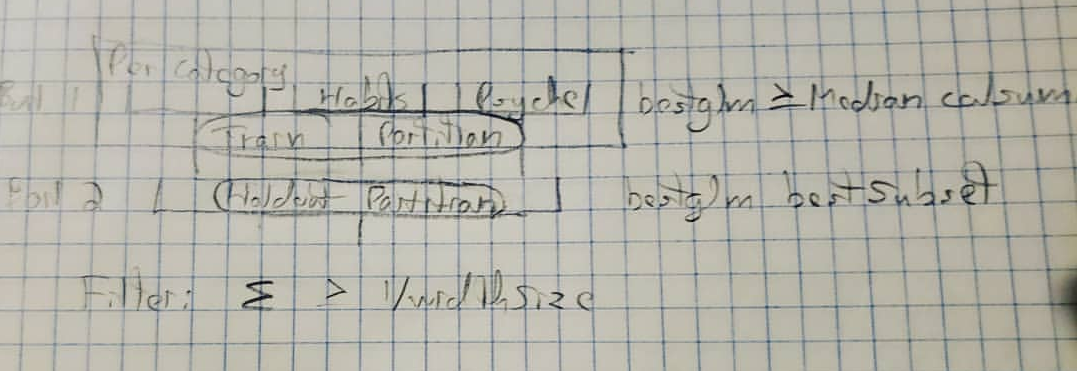 Per category
Habits Psyche bestglm ≥ Median calsum
Train Partition
2 Holdout Partition bestglm best subset
Filter: Σ > 1/width size